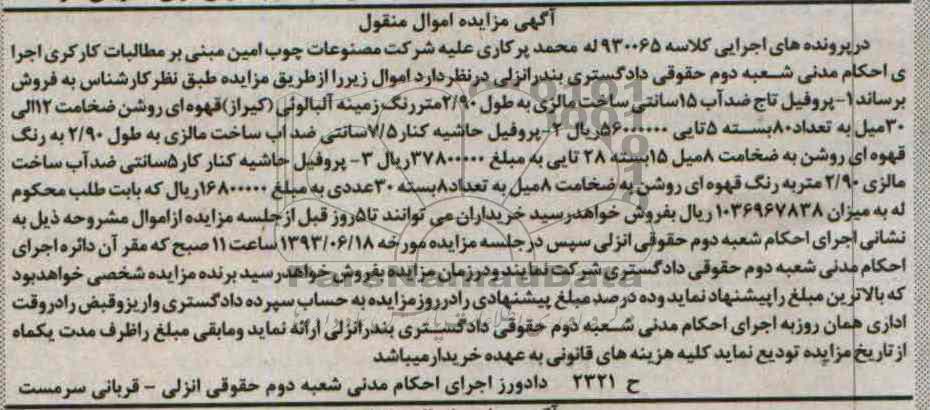 آگهی مزایده اموال منقول
درپرونده های اجرایی کلاسه ۹۳۰۰۶۵ له محمد پرکاری علیه شرکت مصنوعات چوب امین مبنی بر مطالبات کارکری اجرا
ی احکام مدنی شعبه دوم حقوقی دادگستری بندرانزلی درنظردارد اموال زیررا ازطریق مزایده طبق نظرکارشناس به فروش
برساند ۱-پروفیل تاج ضدآب ۱۵سانتی ساخت مالزی به طول ۲/۹۰متررنگ زمینه آلبالوئی (کیراز)قهوه ای روشن ضخامت ۱۲الی
۳۰میل به تعداد۸۰بسته ۵تایی ۵۶۰۰۰۰۰۰ریال ۲-پروفیل حاشیه کنار۷/۵سانتی ضد آب ساخت مالزی به طول ۲/۹۰ به رنگ
قهوه ای روشن به ضخامت ۸میل ۱۵بسته ۲۸ تایی به مبلغ ۳۷۸۰۰۰۰۰ریال ۳- پروفیل حاشیه کنار کار۵سانتی ضدآب ساخت
مالزی ۲/۹۰ متربه رنگ قهوه ای روشن به ضخامت ۸میل به تعداد۸بسته ۳۰عددی به مبلغ ۱۶۸۰۰۰۰۰ریال که بابت طلب محکوم
له به میزان ۱۰۳۶۹۶۷۸۳۸ ریال بفروش خواهدرسید خریداران می توانند تا۵روز قبل ازجلسه مزایده ازاموال مشروحه ذیل به
نشانی اجرای احکام شعبه دوم حقوقی انزلی سپس درجلسه مزایده مورخه ۱۳۹۳/۰۶/۱۸ ساعت ۱۱ صبح که مقر آن دائره اجرای
احکام مدنی شعبه دوم حقوقی دادگستری شرکت نمایندودرزمان مزایده بفروش خواهدرسید برنده مزایده شخصی خواهدبود
که بالاترین مبلغ راپیشنهاد نماید وده درصد مبلغ پیشنهادی رادرروزمزایده به حساب سپرده دادگستری واریزوقبض رادروقت
اداری همان روزبه اجرای احکام مدنی شعبه دوم حقوقی دادگستری بندرانزلی ارائه نماید ومابقی مبلغ راظرف مدت یکماه
ازتاریخ مزایده تودیع نماید کلیه هزینه های قانونی به عهده خریدارمیباشد
ح ۲۳۲۱ دادورز اجرای احکام مدنی شعبه دوم حقوقی انزلی - قربانی سرمست
ParsNamadData